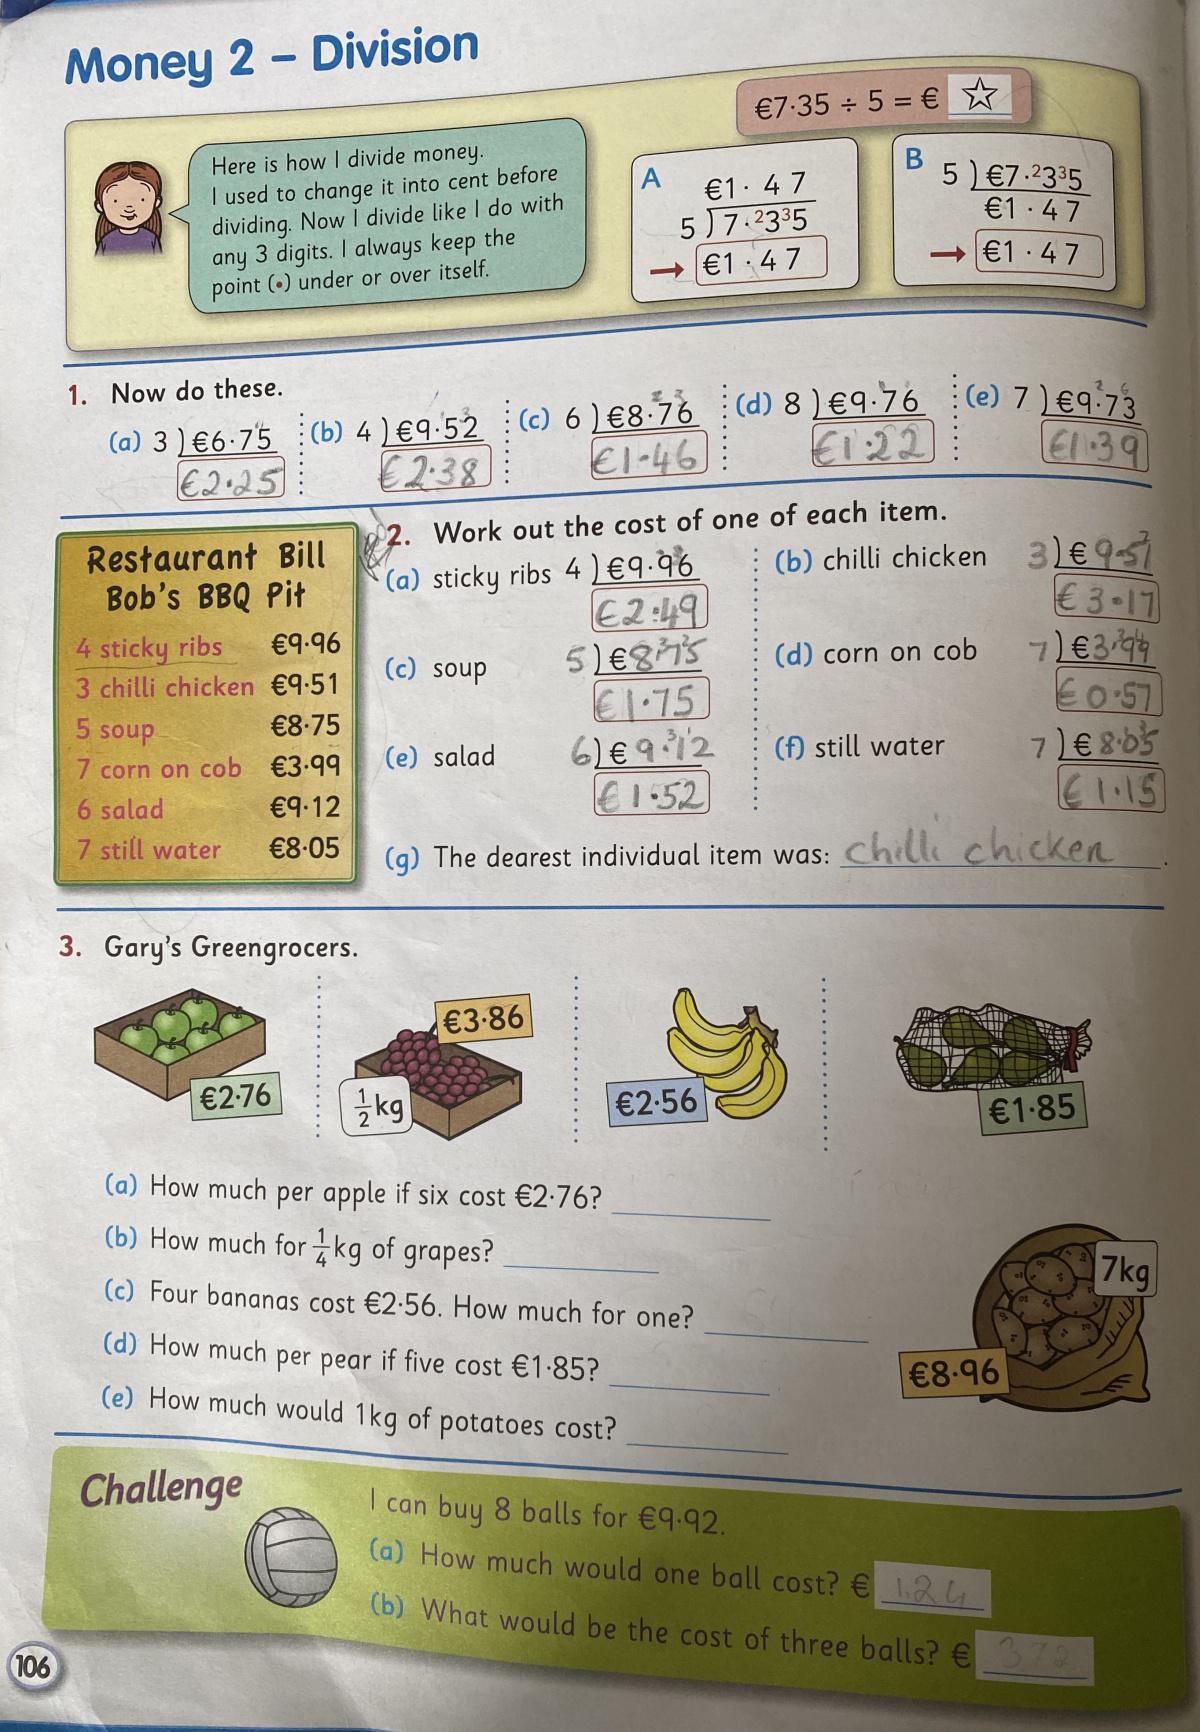 Money 2 – Division
€7·35 ÷ 5 = € ☆
Here is how I divide money.
I used to change it into cent before
dividing. Now I divide like I do with
any 3 digits. I always keep the
point (•) under or over itself.
A
€1· 4 7
5 ) 7·²3³5
→ €1 · 4 7
B
5 ) €7·²3³5
€1 · 4 7
→ €1 · 4 7
1. Now do these.
(a) 3 ) €6·75
€2·25
(b) 4 ) €9·52
€2·38
(c) 6 ) €8·76
€1·46
(d) 8 ) €9·76
€1·22
(e) 7 ) €9·73
€1·39
Restaurant Bill
Bob's BBQ Pit
4 sticky ribs €9·96
3 chilli chicken €9·51
5 soup €8·75
7 corn on cob €3·99
6 salad €9·12
7 still water €8·05
2. Work out the cost of one of each item.
(a) sticky ribs 4 ) €9·96
€2·49
(b) chilli chicken 3 ) €9·51
€3·17
(c) soup 5 ) €8·75
€1·75
(d) corn on cob 7 ) €3·99
€0·57
(e) salad 6 ) €9·12
€1·52
(f) still water 7 ) €8·05
€1·15
(g) The dearest individual item was: chilli chicken.
3. Gary's Greengrocers.
€2·76
€3·86
½ kg
€2·56
€1·85
(a) How much per apple if six cost €2·76?
(b) How much for ¼ kg of grapes?
(c) Four bananas cost €2·56. How much for one?
(d) How much per pear if five cost €1·85?
(e) How much would 1kg of potatoes cost?
7kg
€8·96
Challenge
I can buy 8 balls for €9·92.
(a) How much would one ball cost? € 1.24
(b) What would be the cost of three balls? € 372
106